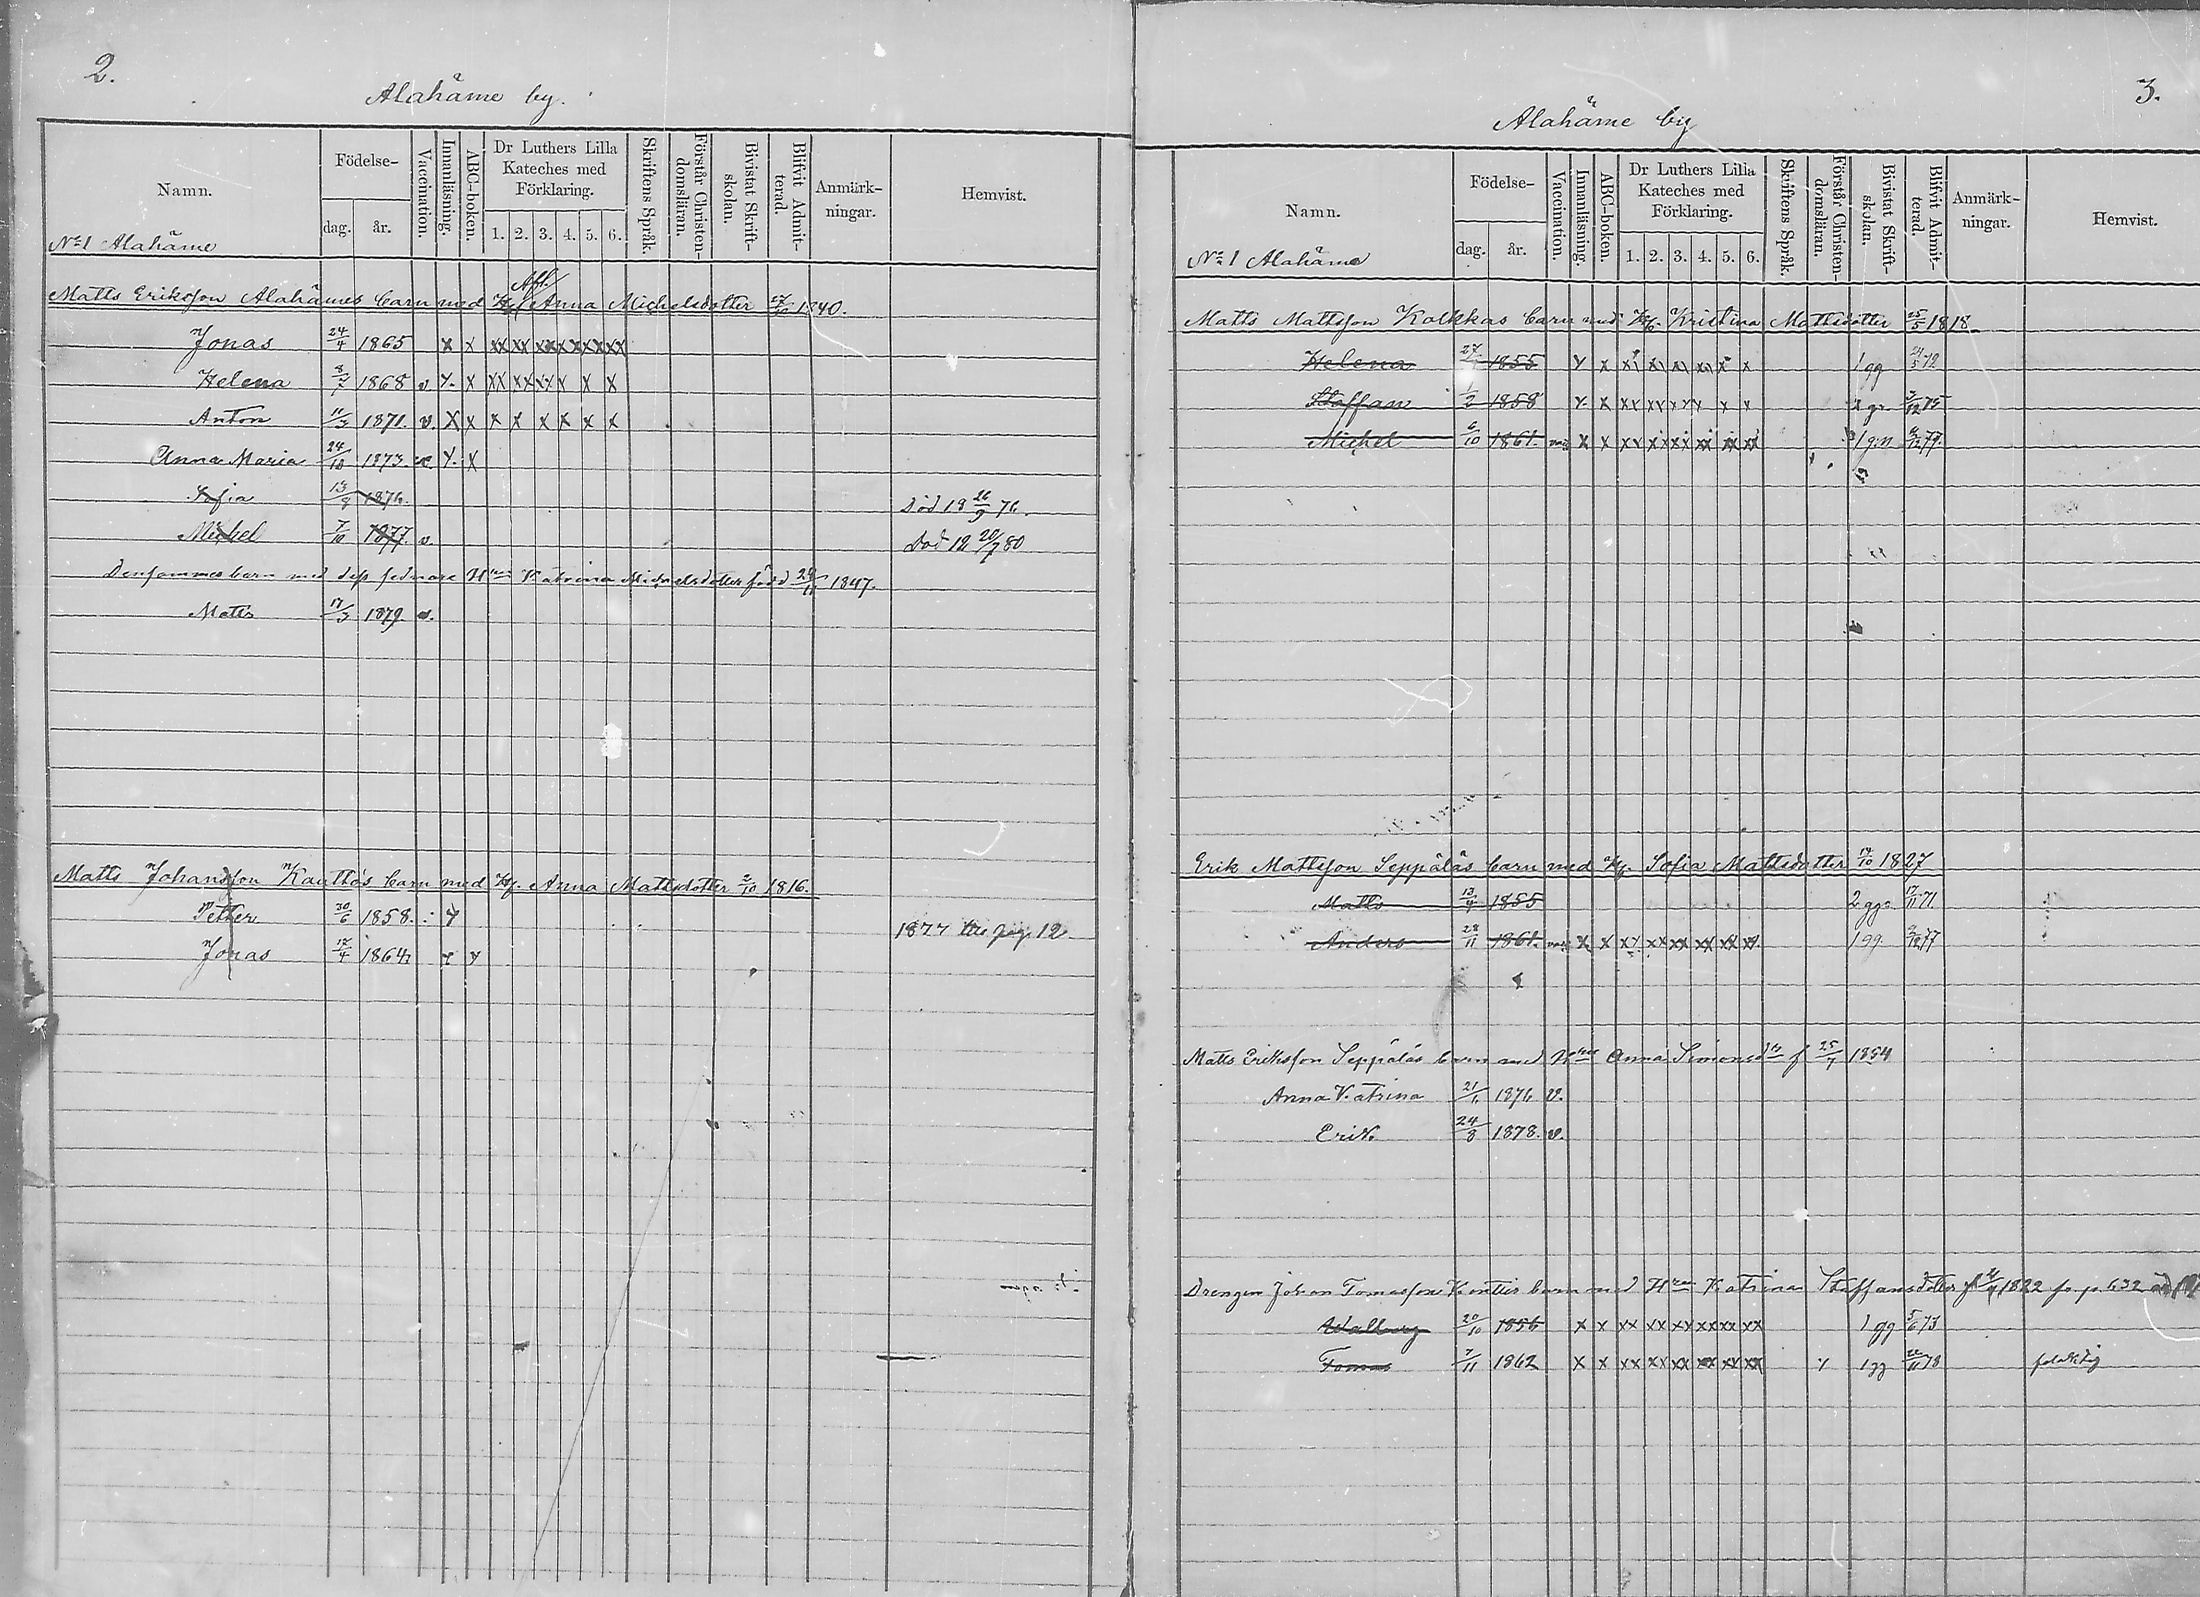 2.
Alahäme by.
Namn.
Födelse-
dag.
år.
Vaccination.
Innanläsning.
ABC-boken.
Dr Luthers Lilla
Kateches med
Förklaring.
1. 2. 3. 4. 5. 6.
Skriftens Språk.
Förstår Christen-
domsläran.
Bivistat Skrift-
skolan.
Blifvit Admit-
terad.
Anmärk-
ningar.
Hemvist.
No 1 Alahäme
Afl.
Matts Eriksson Alahämes barn med Hu Anna Michelsdotter 1840.
Jonas 24/4 1865 x x xx xx xx xx xx xx
Helena 8/7 1868 v x x xx xx xx x x x
Anton 1871. v. x x x x x x x x
Anna Maria 24/10 1873. x x
Sofia 13/9 1876. Död 18 26/9 76.
Michel 7/10 1877. v. Död 18 20/7 80
Densammes barn med dess sednare Hru Katrina Michelsdotter född 1847.
Matts 17/3 1879. v.
Matts Johansson Kauttos barn med Hu. Anna Mattsdotter 2/10 1816.
Petter 30/6 1858. x
Jonas 17/4 1864 x x
1877 pag. 12
3.
Alahäme by
Namn.
Födelse-
dag.
år.
Vaccination.
Innanläsning.
ABC-boken.
Dr Luthers Lilla
Kateches med
Förklaring.
1. 2. 3. 4. 5. 6.
Skriftens Språk.
Förstår Christen-
domsläran.
Bivistat Skrift-
skolan.
Blifvit Admit-
terad.
Anmärk-
ningar.
Hemvist.
No 1 Alahäme
Matts Mattsson Kolkkas barn med Hu. Kristina Mattsdotter 25/5 1818
Helena 1855 x x x x x x x x 1 gg 72
Staffan 1/2 1858 x x xx xx xx x x 75
Michel 6/10 1861. x x xx xx xx xx xx xx 1 g:n 77.
Erik Mattsson Seppäläs barn med Hu. Sofia Mattsdotter 14/10 1827
Matts 1855 2 ggr 71.
Anders 28/11 1861. x x xx xx xx xx xx xx 1 gg. 77
Matts Eriksson Seppäläs barn med Hru Anna Simonsdtr f 25/7 1854
Anna Katrina 1876 v.
Erik 24/8 1878. v.
Drengen Johan Tomasson Konttis barn med Hru Katrina Staffansdotter f 1822 fr. p. 632
Walborg 20/10 1856 x x xx xx xx xx xx xx 1 gg 5/6 73
Tomas 7/11 1862 x x xx xx xx xx xx xx 1 gg 78